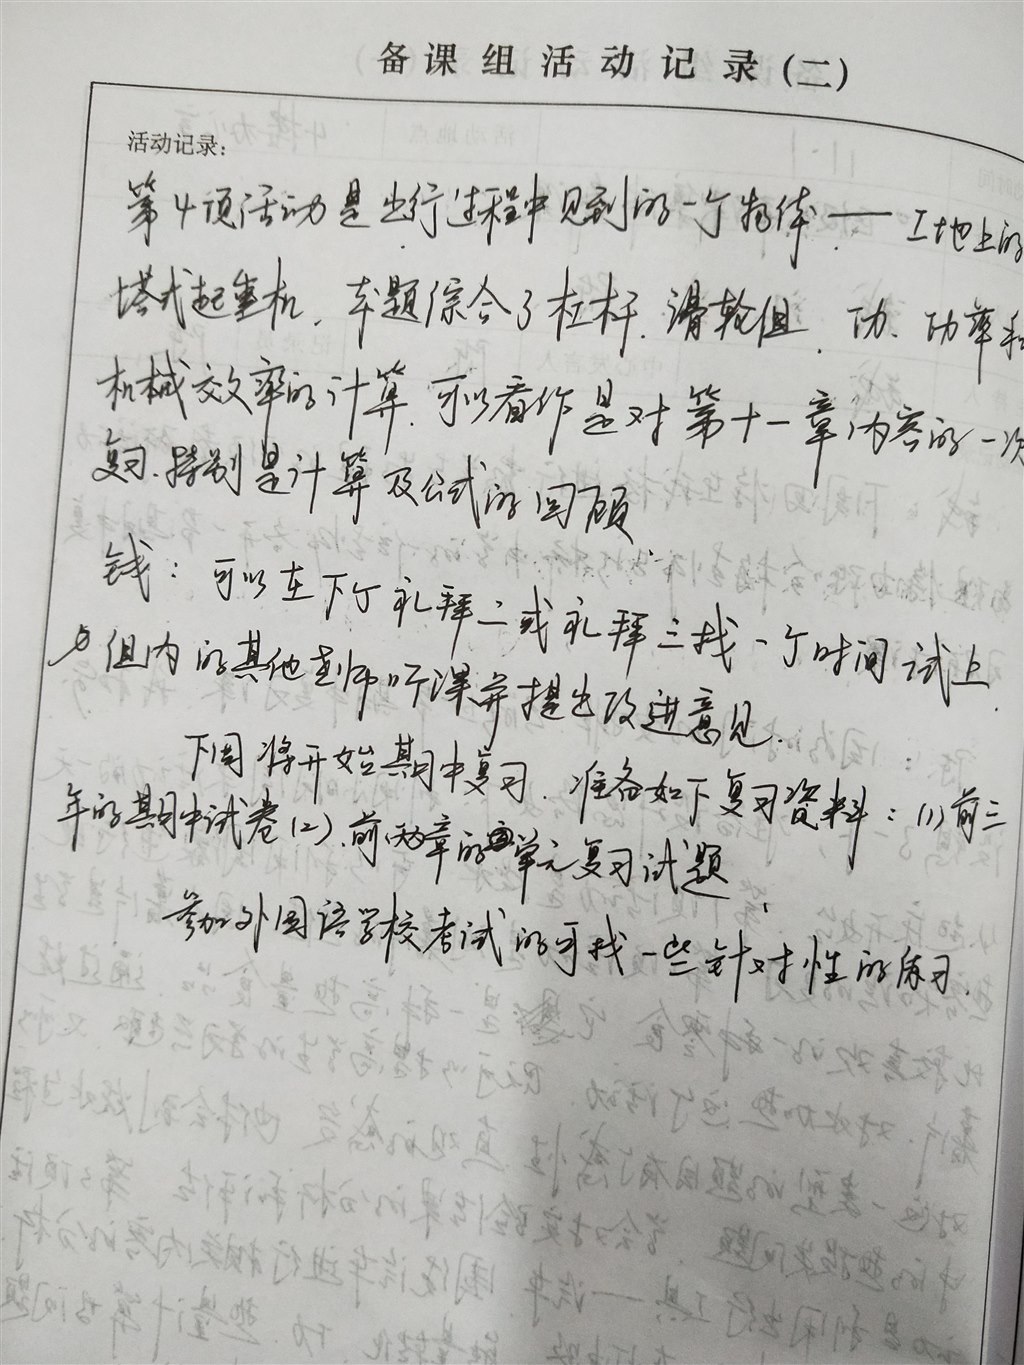 备课组活动记录(二)
活动记录:
第4项活动是出行过程中见到的一个物体——工地上的
塔式起重机、本题综合了杠杆、滑轮组、功、功率和
机械效率的计算、可以看作是对第十一章内容的一次
复习、特别是计算及公式的回顾
钱:可以在下个礼拜二或礼拜三找一个时间试上.
组内的其他老师听课并提出改进意见.
下周将开始期中复习.准备如下复习资料:(1)前三
年的期中试卷(2)、前两章的单元复习试题、
参加外国语学校考试的可找一些针对性的练习.